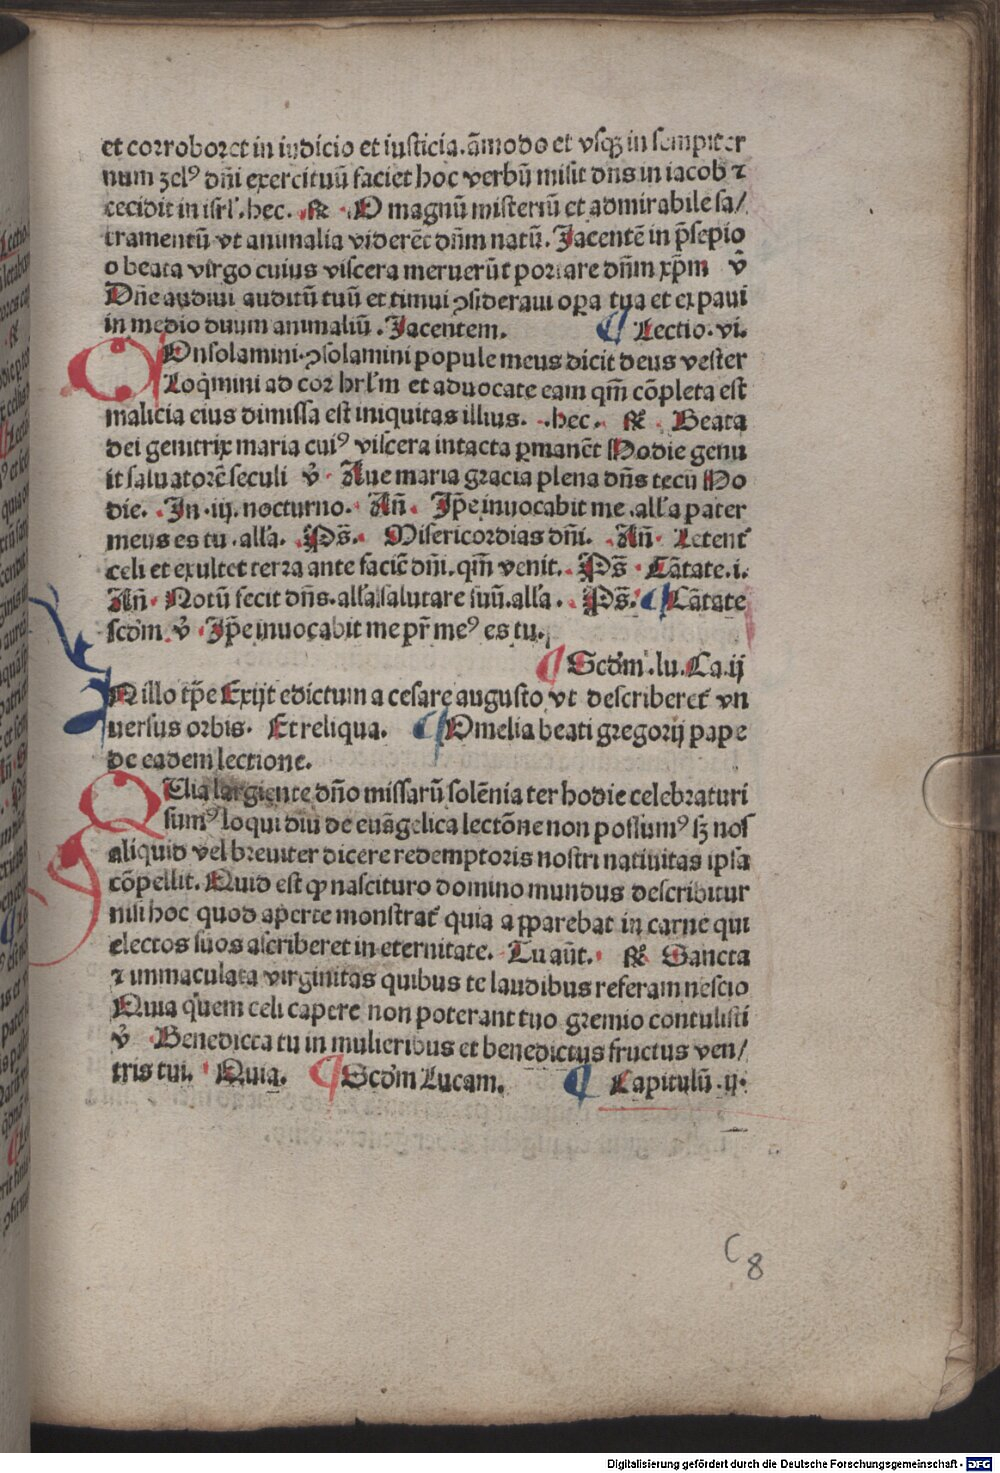 et corroboret in iudicio et iusticia. āmodo et vsqꝫ in sempiter
num zelꝰ dn̄i exercituū faciet hoc verbū misit dn̄s in iacob ⁊
cecidit in isrl̓. hec. ℟ O magnū misteriū et admirabile sa/
cramentū vt animalia viderēt dn̄m natū. Jacentē in p̄sepio
o beata virgo cuius viscera meruerūt portare dn̄m xp̄m v̄
Dn̄e audiui auditū tuū et timui ꝯsideraui oꝑa tua et expaui
in medio duum animaliū. Jacentem. ¶ Lectio .vi.
COnsolamini. ꝯsolamini popule meus dicit deus vester
Loq̄mini ad cor hrl̓m et aduocate eam qm̄ cōpleta est
malicia eius dimissa est iniquitas illius. .hec. ℟ Beata
dei genitrix maria cuiꝰ viscera intacta ꝑmanēt Hodie genu
it saluatorē seculi v̄ Aue maria gracia plena dn̄s tecū Ho
die. Jn .iij. nocturno. An̄. Jp̄e inuocabit me .all̓a pater
meus es tu .all̓a. Ps̄. Misericordias dn̄i. An̄ Letent᷑
celi et exultet terra ante faciē dn̄i. qm̄ venit. Ps̄ Cātate .i.
An̄ Notū fecit dn̄s. all̓a salutare suū. all̓a. Ps̄. ¶ Cātate
scd̓m v̄ Jp̄e inuocabit me pr̄ meꝰ es tu.
¶ Scd̓m .lu. Ca. ij
JN illo tp̄e Exijt edictum a cesare augusto vt describeret᷑ vn
uersus orbis. Et reliqua. ¶ Omelia beati gregorij pape
de eadem lectione.
QUia largiente dn̄o missarū solēnia ter hodie celebraturi
sumꝰ loqui diu de euāgelica lectōne non possumꝰ sꝫ nos
aliquid vel breuiter dicere redemptoris nostri natiuitas ipsa
cōpellit. Quid est ꝙ nascituro domino mundus describitur
nisi hoc quod aperte monstrat᷑ quia apparebat in carne qui
electos suos ascriberet in eternitate. Tu aūt. ℟ Sancta
⁊ immaculata virginitas quibus te laudibus referam nescio
Quia quem celi capere non poterant tuo gremio contulisti
v̄ Benedicta tu in mulieribus et benedictus fructus ven/
tris tui. Quia. ¶ Scd̓m Lucam. ¶ Capitulū .ij.
C 8
Digitalisierung gefördert durch die Deutsche Forschungsgemeinschaft - DFG